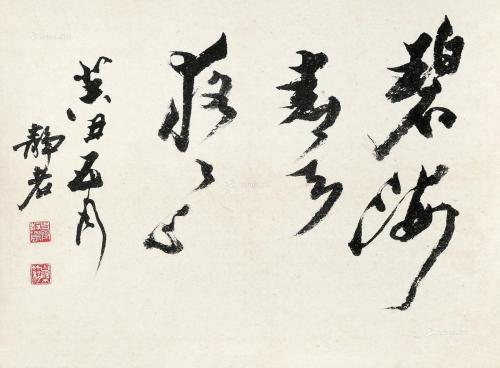 碧海
青天
夜夜心
癸丑五月
静若